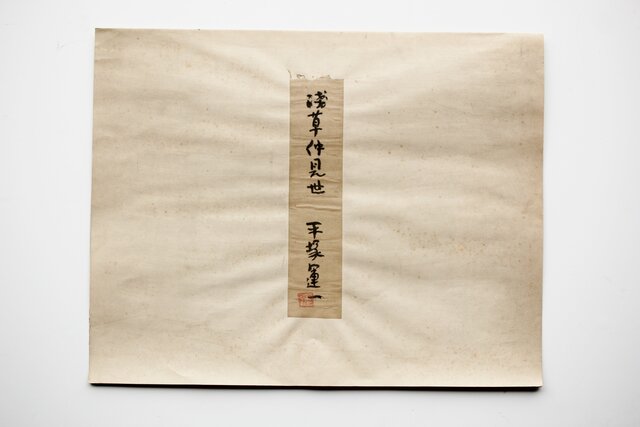 浅草仲見世　平塚運一